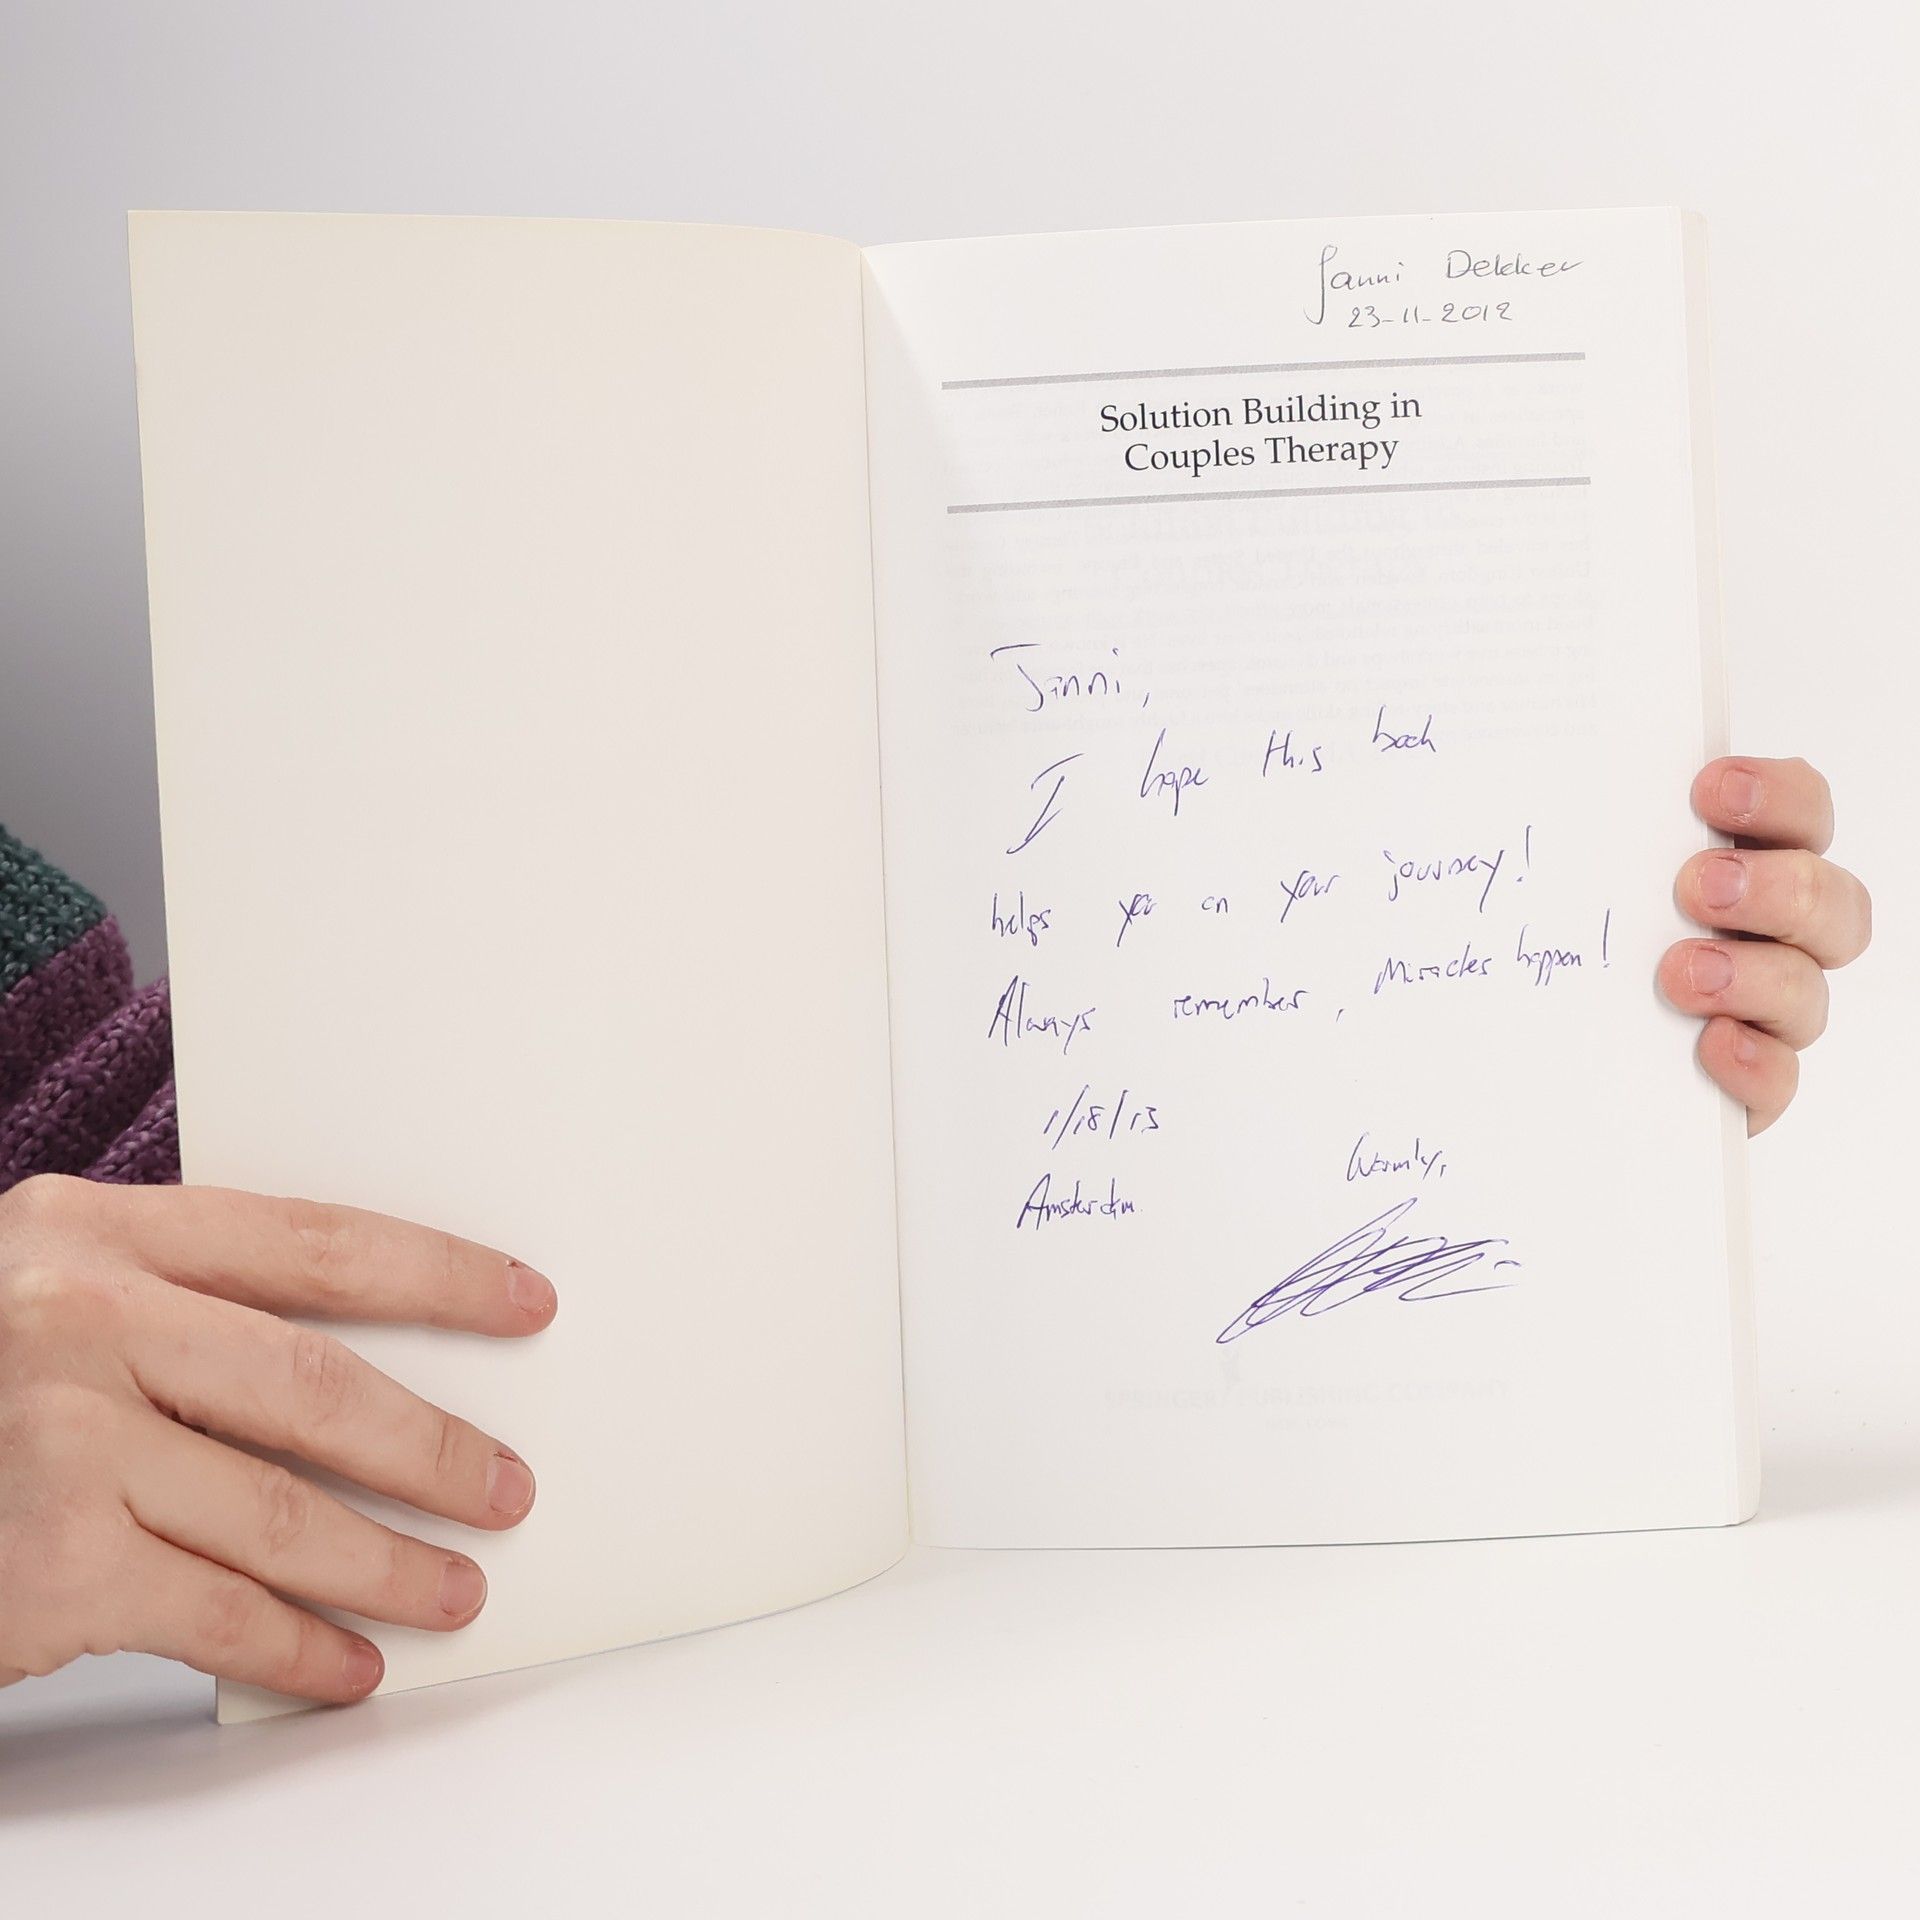 Janni Dekker
23-11-2012
Solution Building in
Couples Therapy
Janni,
I hope this book
helps you on your journey!
Always remember, Miracles happen!
1/18/13
Warmly,
Amsterdam.
SPRINGER PUBLISHING COMPANY
NEW YORK